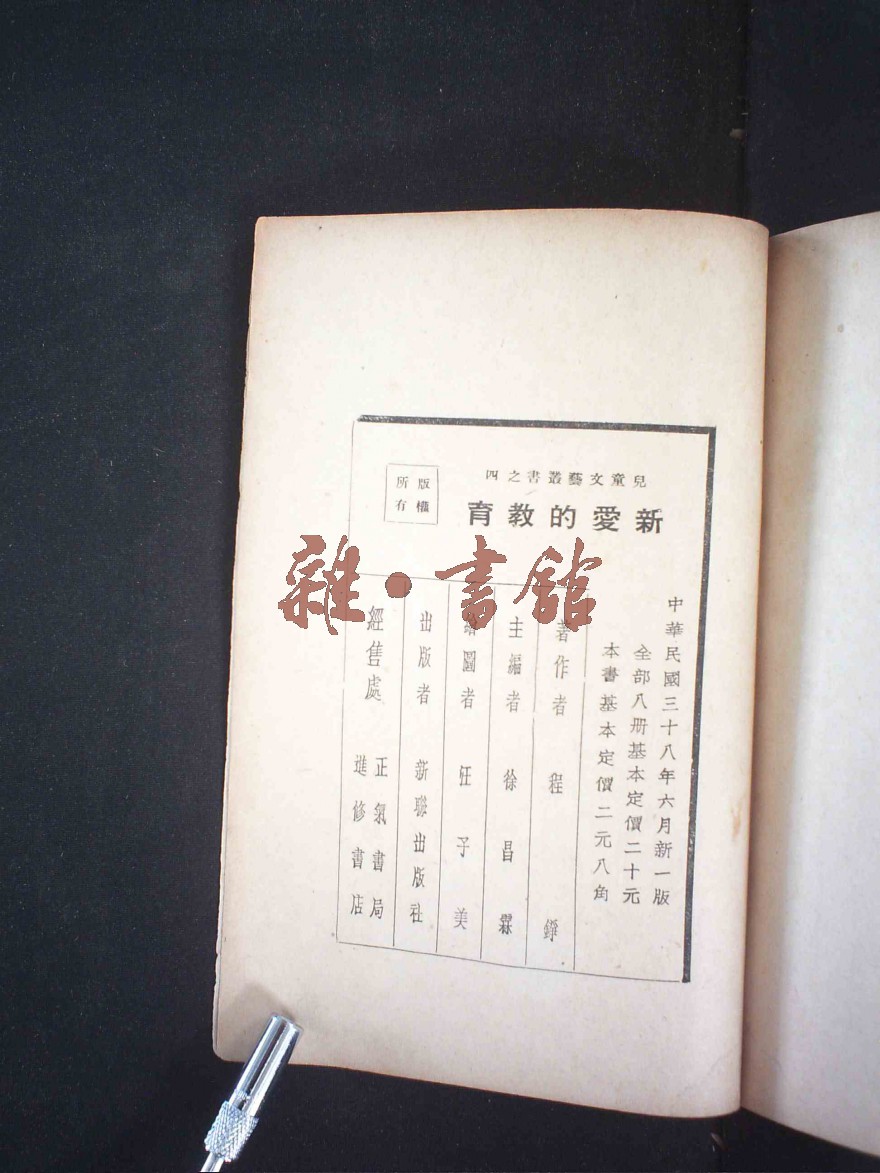 兒童文藝叢書之四
新愛的教育
版權
所有
中華民國三十八年六月新一版
全部八册基本定價二十元
本書基本定價二元八角
著作者 程錚
主編者 徐昌霖
繪圖者 任子美
出版者 新聯出版社
經售處 正氣書局
進修書店
雜·書館